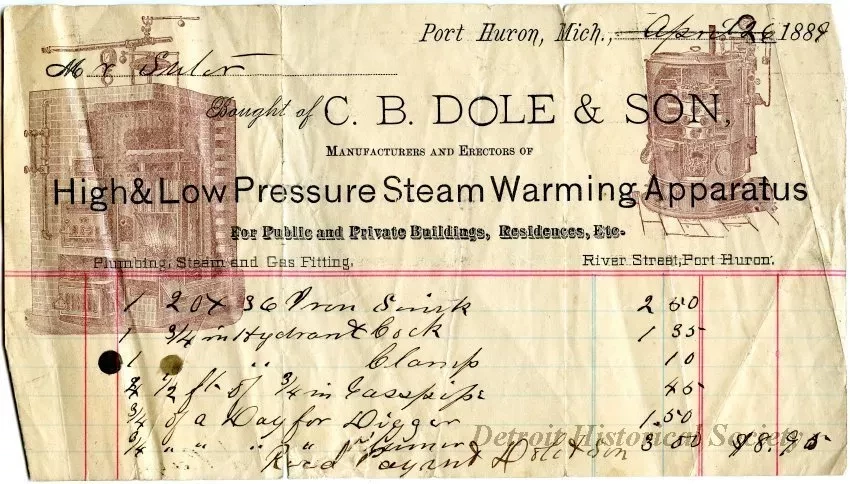 Port Huron, Mich., April 26 1889
Mr Suter
Bought of C. B. DOLE & SON,
MANUFACTURERS AND ERECTORS OF
High & Low Pressure Steam Warming Apparatus
For Public and Private Buildings, Residences, Etc.
Plumbing, Steam and Gas Fitting. River Street, Port Huron.
1 20 x 36 Iron Sink 2 50
1 3/4 in Hydrant Cock 1 35
1 " Clamp 10
4 1/2 ft of 3/4 in Gasspipe 45
3/4 of a Day for Digger 1.50
3/4 " " " " 3 00 $8.90
Recd Paymt Dole & Son
Detroit Historical Society